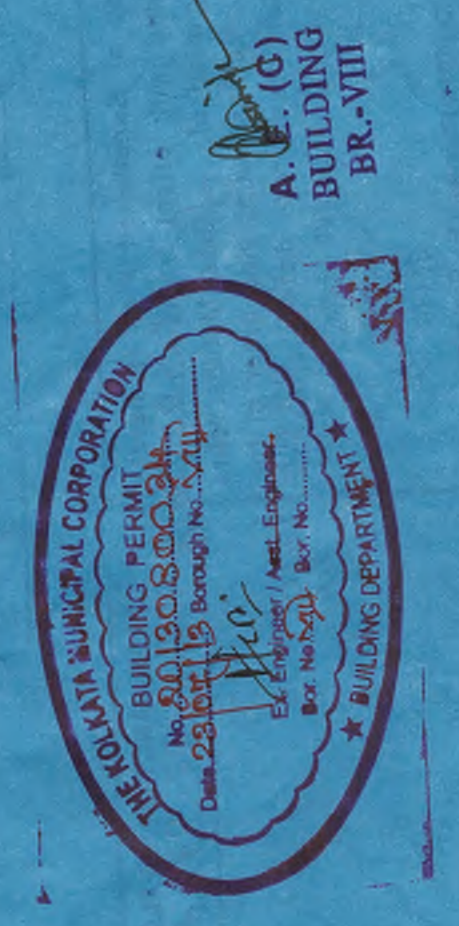 THE KOLKATA MUNICIPAL CORPORATION
BUILDING PERMIT
No. 2013080024
Date 23/05/13 Borough No. VIII
Ex. Engineer / Asst. Engineer
Bor. No. VIII Bor. No.
★ BUILDING DEPARTMENT ★
A. E. (C)
BUILDING
BR.-VIII